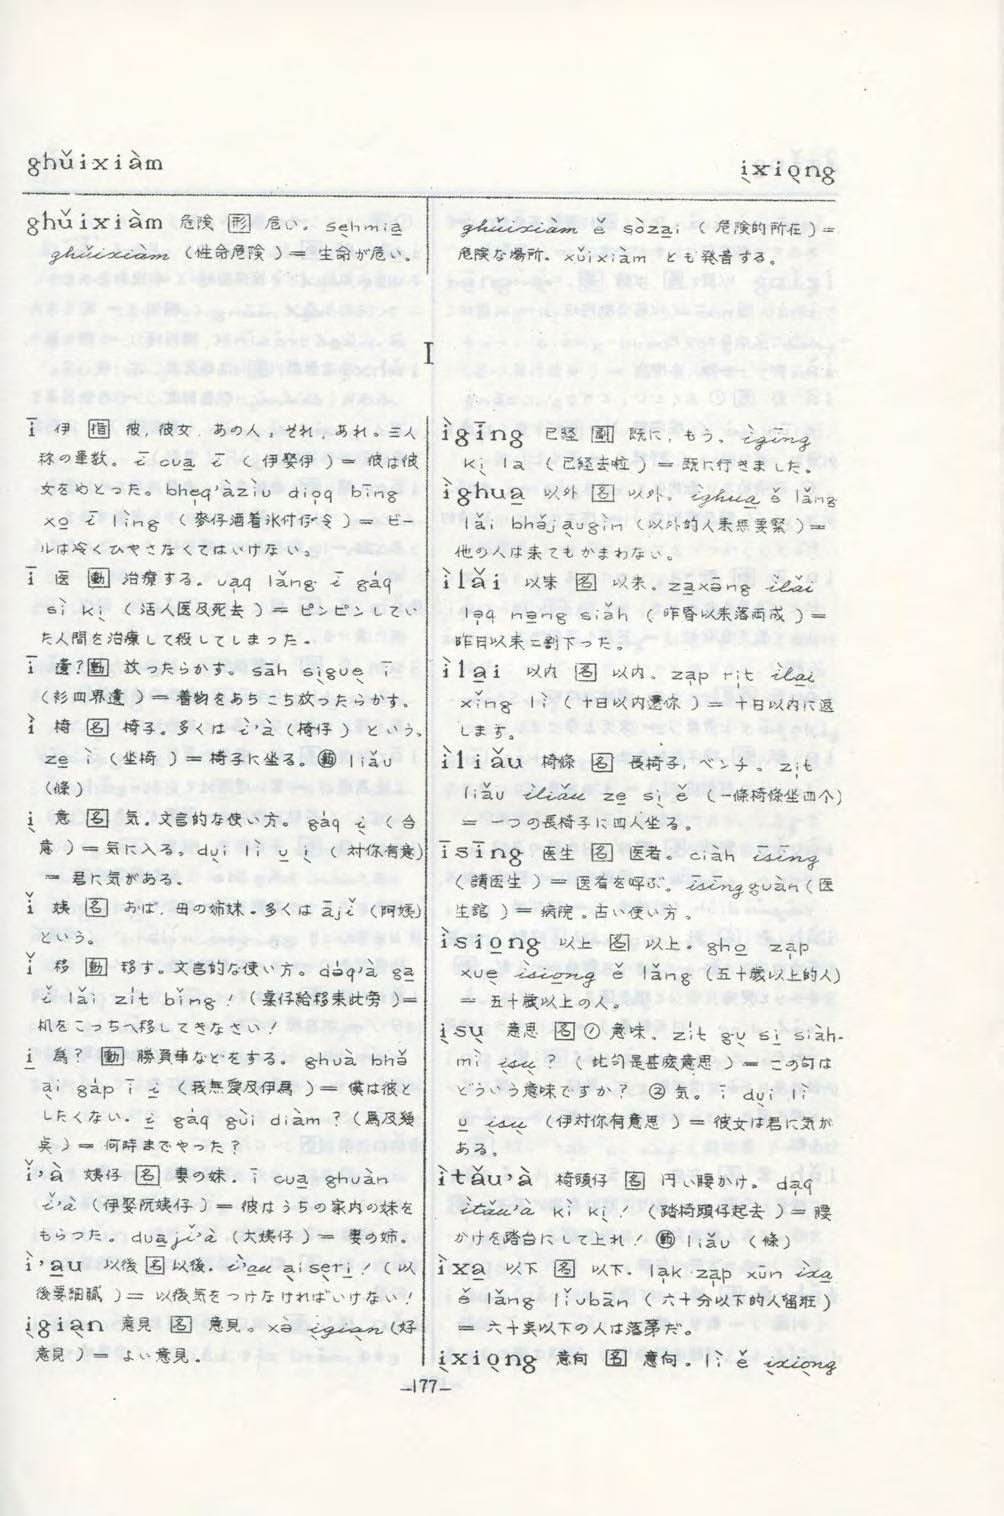 ghǔixiàm
i̖xio̖ng
ghǔixiàm 危険 形 危い。se̖hmia̱
ghǔixiàm (性命危険) = 生命が危い。
ghǔixiàm ě sòza̱i (危険的所在) =
危険な場所。xǔixiàm とも発音する。
I
ī 伊 指 彼,彼女.あの人,それ,あれ。三人
称の単数。ī cua̱ ī (伊娶伊) = 彼は彼
女をめとった。bhe̍q'àzìu dio̍q bīng
xo̱ ī līng (麥仔酒着氷付伊令) = ビー
ルは冷くひやさなくてはいけない。
ī 医 動 治療する。ua̍q lǎng ī gáq
sì ki̖ (活人医及死去) = ピンピンしてい
た人間を治療して殺してしまった。
ī 遺? 動 放ったらかす。sāh si̖gue̖ ī
(衫四界遺) = 着物をあちこち放ったらかす。
ì 椅 名 椅子。多くは ì'à (椅仔) という。
ze̱ ì (坐椅) = 椅子に坐る。 liǎu
(條)
i̖ 意 名 気。文言的な使い方。gáq i̖ (合
意) = 気に入る。du̖i lì u̱ i̖ (対你有意)
= 君に気がある。
ǐ 姨 名 おば.母の姉妹。多くは ājǐ (阿姨)
という。
ǐ 移 動 移す。文言的な使い方。dóq'à ga̱
ǐ lǎi zít bǐng! (桌仔給移来此旁) =
机をこっちへ移してきなさい!
i̱ 為? 動 勝負事などをする。ghuà bhǒ
a̖i gáp ī i̱ (我無愛及伊為) = 僕は彼と
したくない。i̱ gáq gùi diàm? (為及幾
点) = 何時までやった?
ǐ'à 姨仔 名 妻の妹。ī cua̱ ghuàn
ǐ'à (伊娶阮姨仔) = 彼はうちの家内の妹を
もらった。dua̱jǐ'à (大姨仔) = 妻の姉。
ì'au̱ 以後 名 以後。ì'au̱ a̖i se̖rī! (以
後要細膩) = 以後気をつけなければいけない!
i̖gia̖n 意見 名 意見。xò i̖gia̖n (好
意見) = よい意見。
ìgīng 已経 副 既に,もう。ìgīng
ki̖ la (已経去啦) = 既に行きました。
ìghua̱ 以外 名 以外。ìghua̱ ě lǎng
lǎi bhǒja̖ugìn (以外的人来無要緊) =
他の人は来てもかまわない。
ìlǎi 以来 名 以来。za̱xāng ìlǎi
lo̍q no̱ng siǎh (昨昏以来落両成) =
昨日以来二割下った。
ìla̱i 以内 名 以内。za̍p ri̍t ìla̱i
xǐng lì (十日以内還你) = 十日以内に返
します。
ìliǎu 椅條 名 長椅子,ベンチ。zi̍t
liǎu ìliǎu ze̱ si̖ ě (一條椅條坐四个)
= 一つの長椅子に四人坐る。
īsīng 医生 名 医者。ciàh īsīng
(請医生) = 医者を呼ぶ。īsīngguàn (医
生館) = 病院。古い使い方。
ìsio̱ng 以上 名 以上。gho̱ za̍p
xue̖ ìsio̱ng ě lǎng (五十歳以上的人)
= 五十歳以上の人。
i̖su̖ 意思 名 ① 意味。zít gu̖ si̱ siàh-
mì i̖su̖? (此句是甚麼意思) = この句は
どういう意味ですか? ② 気。ī du̖i lì
u̱ i̖su̖ (伊対你有意思) = 彼女は君に気が
ある。
ìtǎu'à 椅頭仔 名 円い腰かけ。da̍q
ìtǎu'à kì ki̖! (踏椅頭仔起去) = 腰
かけを踏台にして上れ! liǎu (條)
ìxa̱ 以下 名 以下。la̍k za̍p xūn ìxa̱
ě lǎng līubān (六十分以下的人留班)
= 六十点以下の人は落第だ。
i̖xio̖ng 意向 名 意向。lì ě i̖xio̖ng
—177—